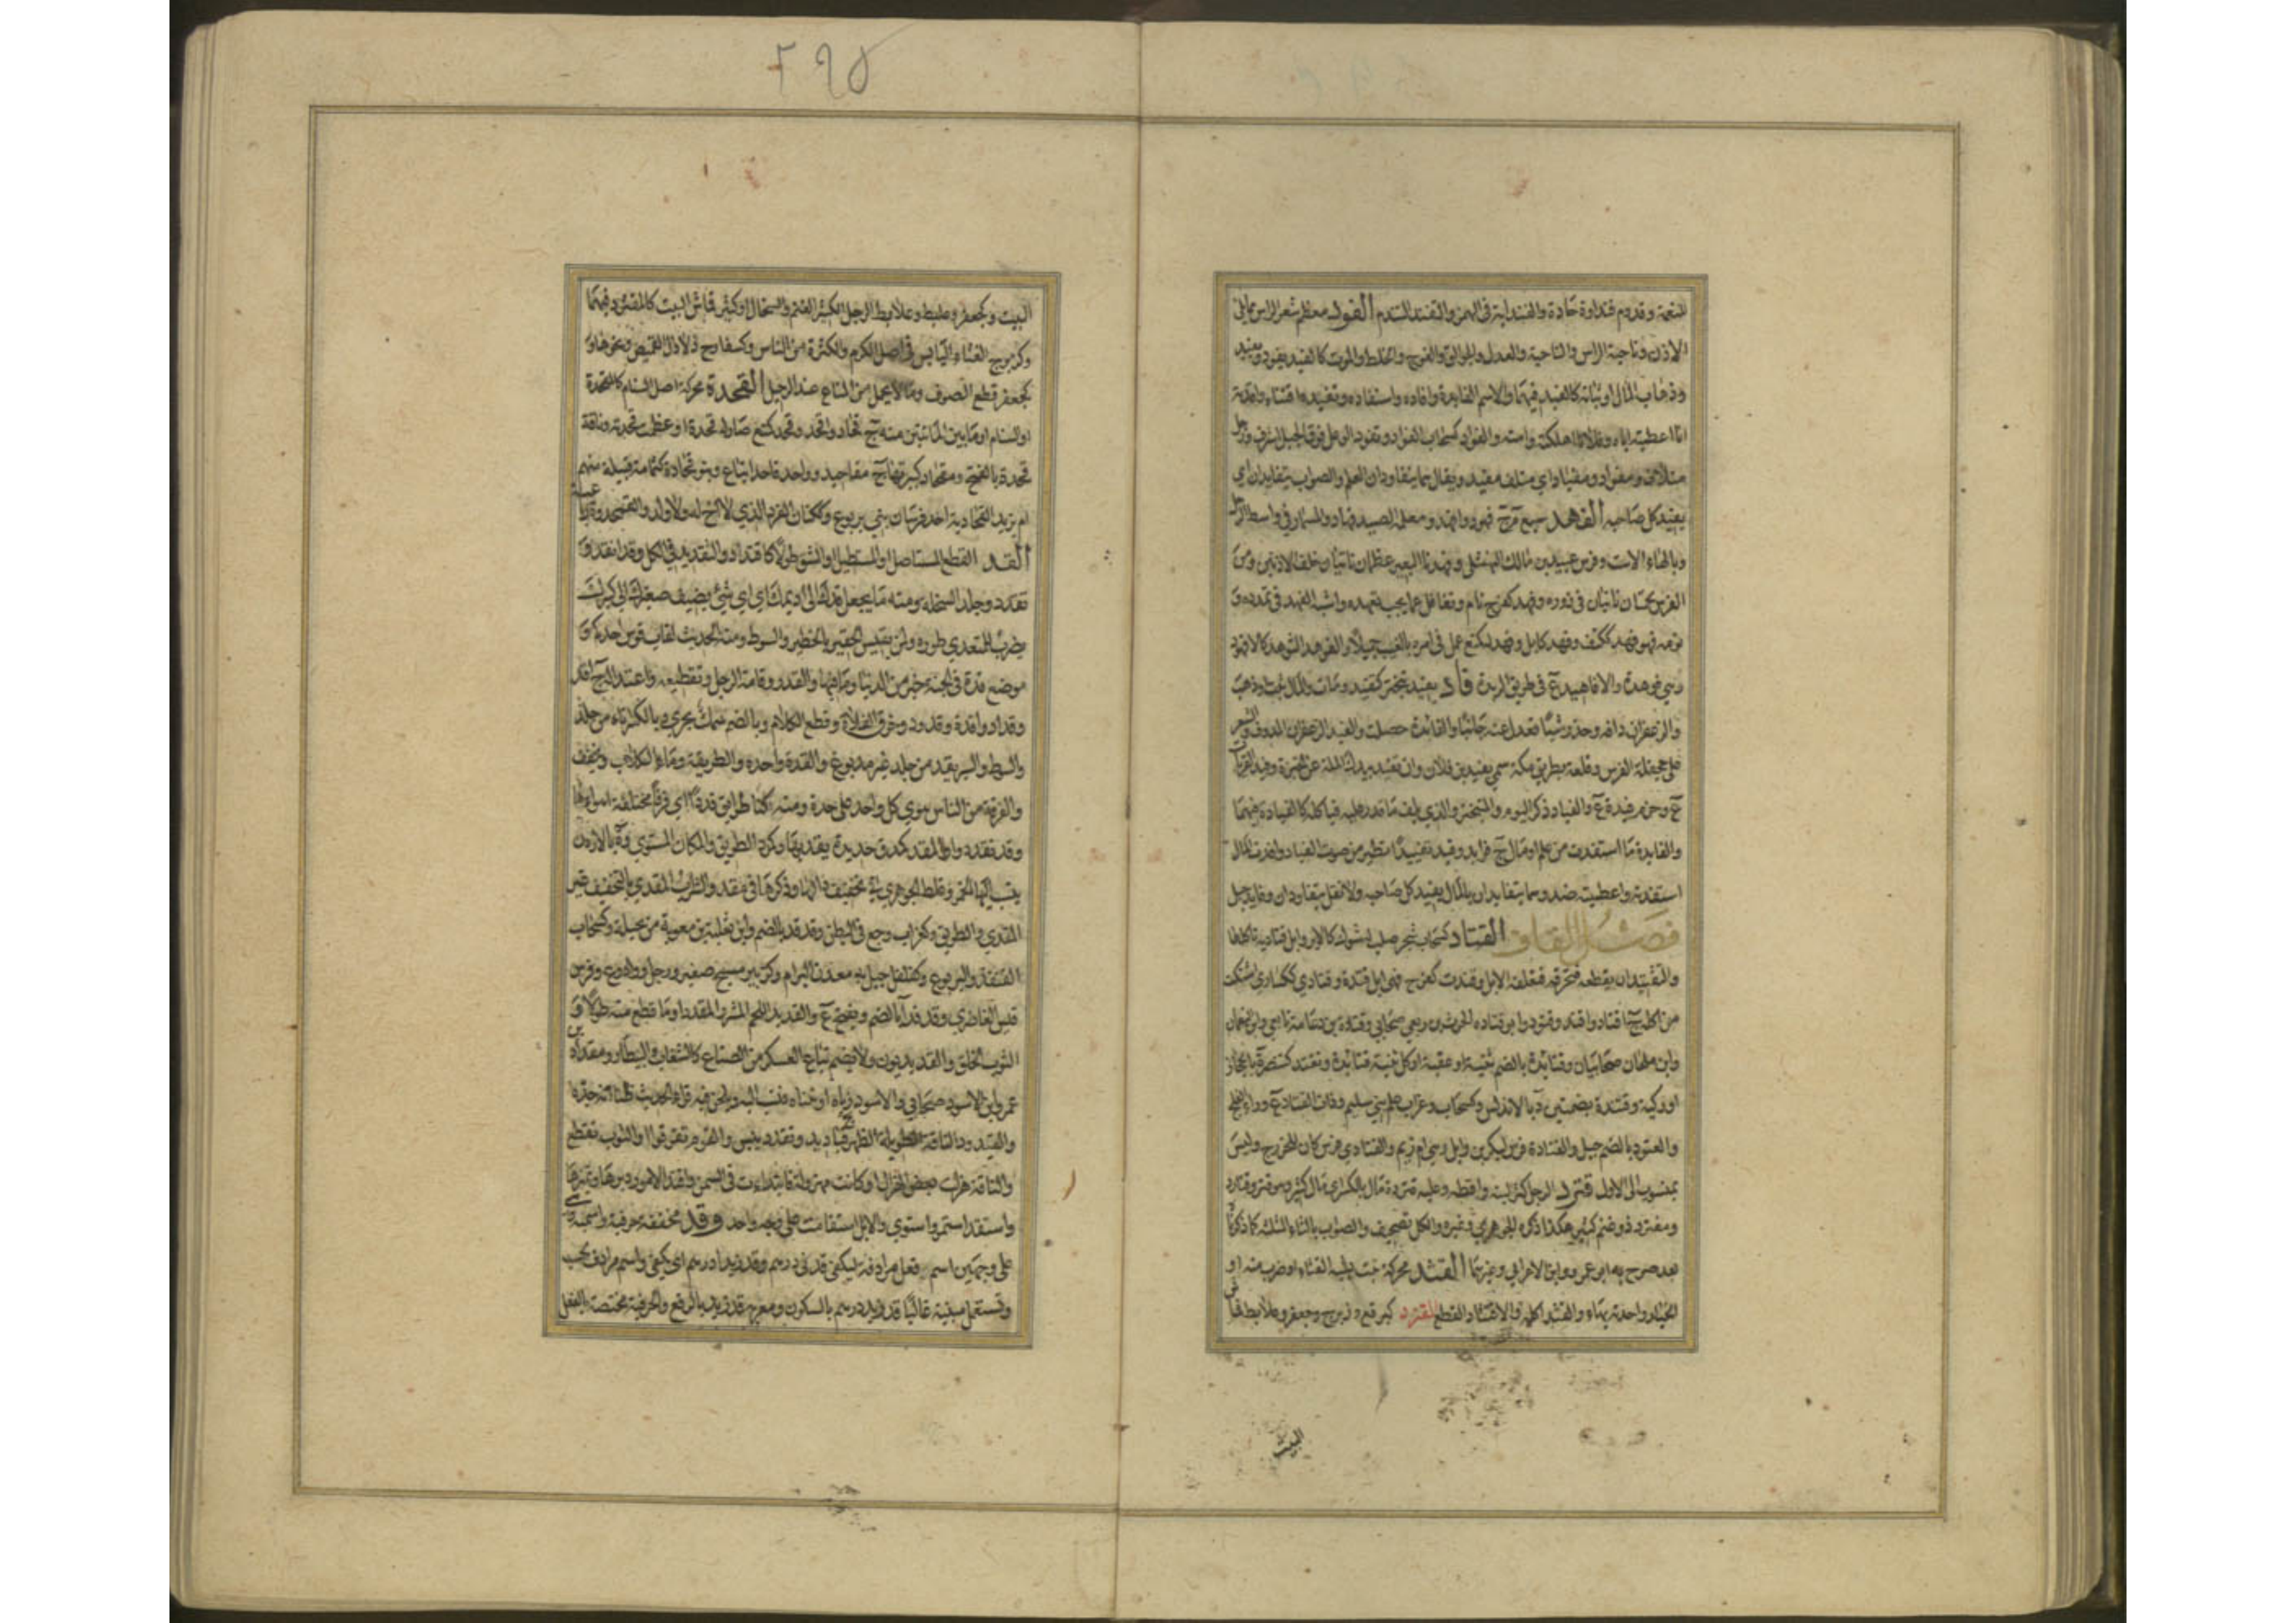 ۲۹۵
المنعمة وقدوم فنداوة حادة والفنداية في الهمز والتفند التندم الفود معظم شعر الراس مما يلي
الاذن وناحية الراس والناحية والعدل والجوالق والفوج والخلط والموت كالفيد يفود ويفيد
وذهاب المال او ثباته كالفيد فيهما والاسم الفايدة وافاده واستفاده وتفيده اقتناه وافدته
انا اعطيته اياه وفلانا اهلكته وامته والفواد كسحاب الفواد وتفود الوعل فوق الجبل اشرف ورجل
متلاف ومفواد ومفياد اي متلف مفيد ويقال هما يتفاودان العلم والصواب يتفايدان اي
يفيد كل صاحبه الفهد سبع م ج فهود وافهد ومعلمه الصيد فهاد والمسمار في واسط الرحل
وبالهاء الاست وفرس عبيد بن مالك النهشلي وفهدتا البعير عظمان ناتيان خلف الاذنين ومن
الفرس لحمتان ناتيتان في زوره وفهد كفرح نام وتغافل عما يجب تعهده واشبه الفهد في تمدده و
نومه فهو فهد ككتف وفهد كابل وفهد له كمنع عمل في امره بالغيب جميلا والفرهد الثوهد كالافهود
وهي فوهدة والافاهيد ع في طريق الربذة فاد يفيد تبختر كتفيد ومات والمال ثبت او ذهب
والزعفران دافه وحذر شيئا فعدل عنه جانبا والفائدة حصلت والفيد الزعفران المدوف والشعر
على جحفلة الفرس وقلعة بطريق مكة سمي بفيد بن فلان وان تفيد بيدك الملة عن الخبزة وفيد القريات
ع وحزم فيدة ع والفياد ذكر البوم والمتبختر والذي يلف ما قدر عليه فياكله كالفيادة فيهما
والفايدة ما استفدت من علم او مال ج فوايد وفيد تفييدا تطير من صوت الفياد وافدت المال
استفدته واعطيته ضد وهما يتفايدان بالمال يفيد كل صاحبه ولا تقل يتفاودان وفايد جبل
فصل القاف القتاد كسحاب شجر صلب له شوك كالابر وابل قتادية تاكلها
والتقتيد ان يقطعه فتحرقه فتعلفه الابل وقتدت كفرح فهي ابل قتدة وقتادى كسكارى اشتكت
من اكله ج اقتاد واقتد وقتود وابو قتادة الحرث بن ربعي صحابي وقتادة بن دعامة تابعي وابن نعمان
وابن ملحان صحابيان وقتائدة بالضم ثنية او عقبة او كل ثنية قتائدة وتقتد كتنصر ة بالحجاز
او ركية وقتندة بضمتين د بالاندلس وكسحاب وغراب علم بني سليم وذات القتاد ع وراء الفلج
والعتود بالضم جبل والقتادة فرس لبكر بن وايل وهي ام زيم والقتادي فرس كان للخزرج وليس
بمنسوب الى الاول قترد الرجل كثر لبنه واقطه وعليه قتردة مال بالكسر اي مال كثير وهو قترد وقتارد
ومقترد ذو غنم كثير هكذا ذكره الجوهري وغيره والكل تصحيف والصواب بالثاء المثلثة كما ذكرنا
بعد صرح به ابو عمرو وابن الاعرابي وغيرهما القثد محركة نبت يشبه القثاء او ضرب منه او
الخيار واحدته بهاء والقثد اكله والاقتثاد القطع القثرد كبرقع وزبرج وجعفر وعلابط قماش
البيت
البيت وكجعفر وعلبط وعلابط الرجل الكثير الغنم والسخال او كثير قماش البيت كالمقثرد فيهما
وكزبرج الغثاء اليابس في اصل الكرم والكثرة من الناس وكسفارج ذلاذل القميص ونحوها و
كجعفر قطع الصوف وما لا يحمل من المتاع عند الرحيل القحدة محركة اصل السنام كالمقحدة
او السنام او ما بين المانتين منه ج قحاد واقحد وقحد كمنع صار له قحدة او عظمت قحدته وناقة
قحدة بالفتح ومقحاد كبيرتها ج مقاحيد وواحد قاحد اتباع وبنو قحادة كثمامة قبيلة منهم
ام يزيد القحادية احد فرسان بني يربوع وككتان الفرد الذي لا اخ له ولا ولد والقمحدوة
القد القطع المستاصل او المستطيل او الشق طولا كالاقتداد والتقديد في الكل وقد انقد و
تقدد وجلد السخلة ومنه ما يجعل قدك الى اديمك اي اي شيء يضيف صغيرك الى كبيرك
يضرب للمتعدي طوره ولمن يقيس الحقير بالخطير والسوط ومنه الحديث لقاب قوس احدكم و
موضع قده في الجنة خير من الدنيا وما فيها والقدر وقامة الرجل وتقطيعه واعتداله ج اقد
وقداد واقدة وقدود وخرق الفلاة وقطع الكلام وبالضم سمك بحري وبالكسر اناء من جلد
والسوط والسير يقد من جلد غير مدبوغ والقدة واحده والطريقة وماء الكلاب ويخفف
والفرقة من الناس هوى كل واحد على حدة ومنه كنا طرائق قددا اي فرقا مختلفة اهواءها
وقد تقددوا والمقد كمدق حديدة يقد بها وكرد الطريق والمكان المستوي وة بالاردن
ينسب اليها الخمر وغلط الجوهري في تخفيف دالها وذكرها في مقد والشراب المقدي بالتخفيف غير
المقدي والطريق وكغراب وجع في البطن وقد قد بالضم وابن ثعلبة بن معوية من بجيلة وكسحاب
القنفذ واليربوع وكفلفل جبل به معدن البرام وكزبير مسيح صغير ورجل وواد وع وفرس
قيس الغاضري وقدقدا بالضم ويفتح ع والقديد اللحم المشرر المقدد او ما قطع منه طولا و
الثوب الخلق والقديديون ولا يضم تباع العسكر من الصناع كالشعاب والبيطار ومقداد بن
عمرو ابن الاسود صحابي والاسود رباه او تبناه فنسب اليه ويلحن فيه قراء الحديث ظنا انه جده
والقيدود الناقة الطويلة الظهر ج قياديد وتقدد يبس والقوم تفرقوا والثوب تقطع
والناقة هزلت بعض الهزال او كانت مهزولة فابتدات في السمن واقتد الامور دبرها وميزها
واستقد استمر واستوى والابل استقامت على وجه واحد وقد مخففة حرفية واسمية وهي
على وجهين اسم فعل مرادفة ليكفي قدني درهم وقد زيدا درهم اي يكفي واسم مرادف لحسب
وتستعمل مبنية غالبا قد زيد درهم بالسكون ومعربة قد زيد بالرفع والحرفية مختصة بالفعل